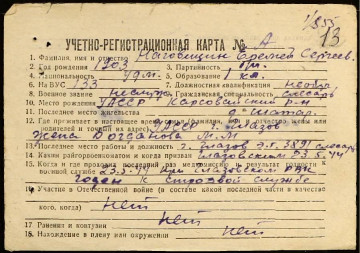 1/855
13
УЧЕТНО-РЕГИСТРАЦИОННАЯ КАРТА № А
1. Фамилия, имя и отчество Наговицин Сергей Сергеев.
2. Год рождения 1903 3. Партийность б/п.
4. Национальность удм. 5. Образование 1 кл.
6. № ВУС 133 7. Должностная квалификация
8. Военное звание 9. Гражданская специальность слесарь
10. Место рождения УАССР Карсовайский р-н
11. Последнее место жительства
12. Где проживает в настоящее время семья (фамилия, имя и отчество жены или
родителей и точный их адрес) УАССР г. Глазов
жена
13. Последнее место работы и должность г. Глазов слесарь
14. Каким райгорвоенкоматом и когда призван Глазовским 23.5.44
15. Когда и где проходил последний раз комиссию и результат годности к
военной службе 23.5.44 при Глазовском РВК
годен к строевой службе
16. Участие в Отечественной войне (в составе какой последней части и в качестве
кого, когда) нет
17. Ранения и контузии нет
18. Нахождение в плену или окружении нет